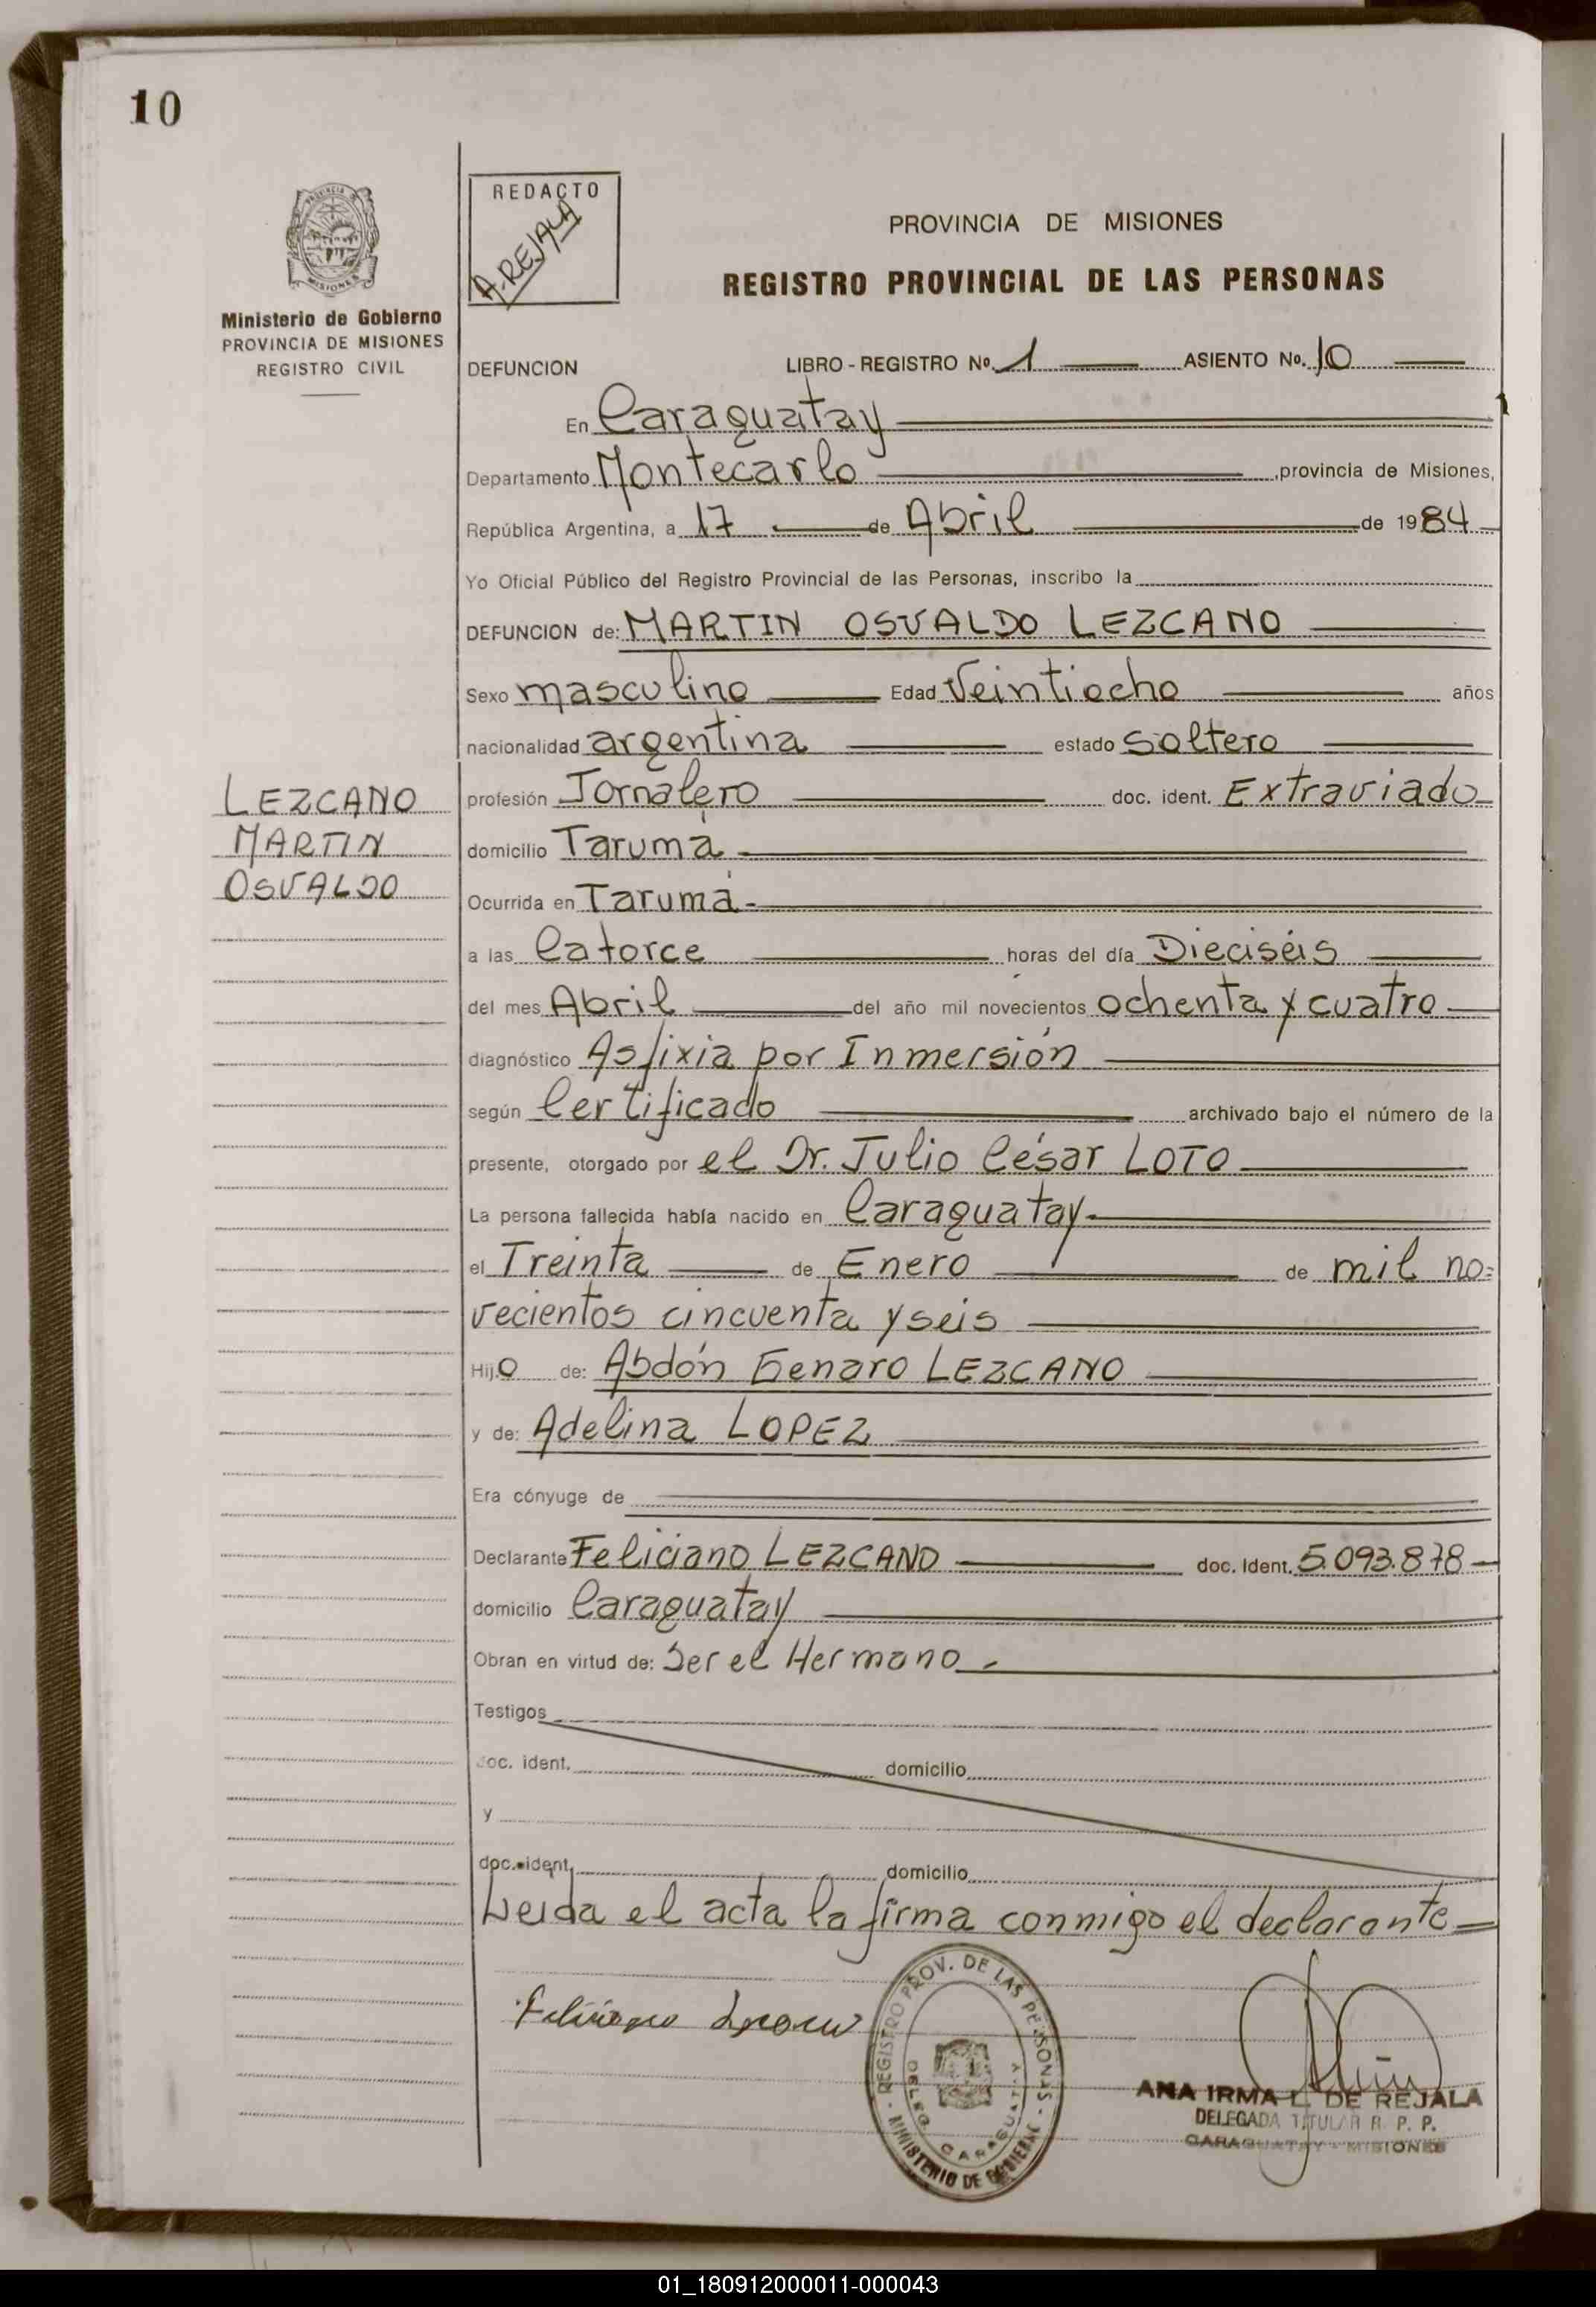 10
PROVINCIA
MISIONES
Ministerio de Gobierno
PROVINCIA DE MISIONES
REGISTRO CIVIL
REDACTO
A. REJALA
PROVINCIA DE MISIONES
REGISTRO PROVINCIAL DE LAS PERSONAS
DEFUNCION LIBRO - REGISTRO No. 1 ASIENTO No. 10
En Caraguatay
Departamento Montecarlo , provincia de Misiones,
República Argentina, a 17 de Abril de 1984
Yo Oficial Público del Registro Provincial de las Personas, inscribo la
DEFUNCION de: MARTIN OSVALDO LEZCANO
Sexo masculino Edad Veintiocho años
nacionalidad argentina estado soltero
LEZCANO
MARTIN
OSVALDO
profesión Jornalero doc. ident. Extraviado
domicilio Taruma -
Ocurrida en Tarumá -
a las Catorce horas del día Dieciséis
del mes Abril del año mil novecientos ochenta y cuatro
diagnóstico Asfixia por Inmersión
según Certificado archivado bajo el número de la
presente, otorgado por el Dr. Julio César LOTO
La persona fallecida había nacido en Caraguatay -
el Treinta de Enero de mil no=
vecientos cincuenta y seis
Hijo de: Abdón Genaro LEZCANO
y de: Adelina LOPEZ
Era cónyuge de
Declarante Feliciano LEZCANO doc. Ident. 5.093.878
domicilio Caraguatay
Obran en virtud de: Ser el Hermano -
Testigos
doc. ident. domicilio
y
doc. ident. domicilio
Leida el acta la firma conmigo el declarante
REGISTRO PROV. DE LAS PERSONAS - MINISTERIO DE GOBIERNO -
DELEG. CARAGUATAY
ANA IRMA L. DE REJALA
DELEGADA TITULAR R. P. P.
CARAGUATAY - MISIONES
01_180912000011-000043